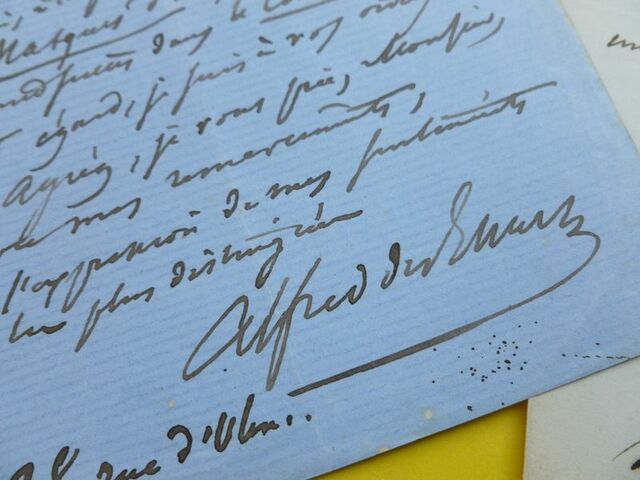 Masques
dans le
égard, je suis à vos ordres
Agréez, je vous prie, Monsieur,
mes remerciements,
l'expression de mes sentiments
les plus distingués
Alfred des Essarts
rue d'Ulm.